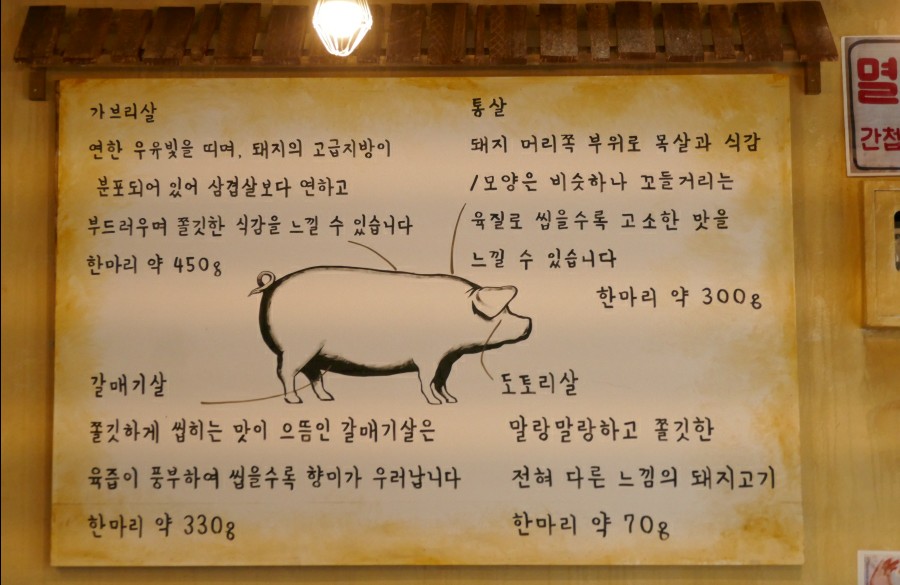 가브리살
연한 우유빛을 띠며, 돼지의 고급지방이
분포되어 있어 삼겹살보다 연하고
부드러우며 쫄깃한 식감을 느낄 수 있습니다
한마리 약 450g
통살
돼지 머리쪽 부위로 목살과 식감
/모양은 비슷하나 꼬들거리는
육질로 씹을수록 고소한 맛을
느낄 수 있습니다
한마리 약 300g
갈매기살
쫄깃하게 씹히는 맛이 으뜸인 갈매기살은
육즙이 풍부하여 씹을수록 향미가 우러납니다
한마리 약 330g
도토리살
말랑말랑하고 쫄깃한
전혀 다른 느낌의 돼지고기
한마리 약 70g
멸
간첩